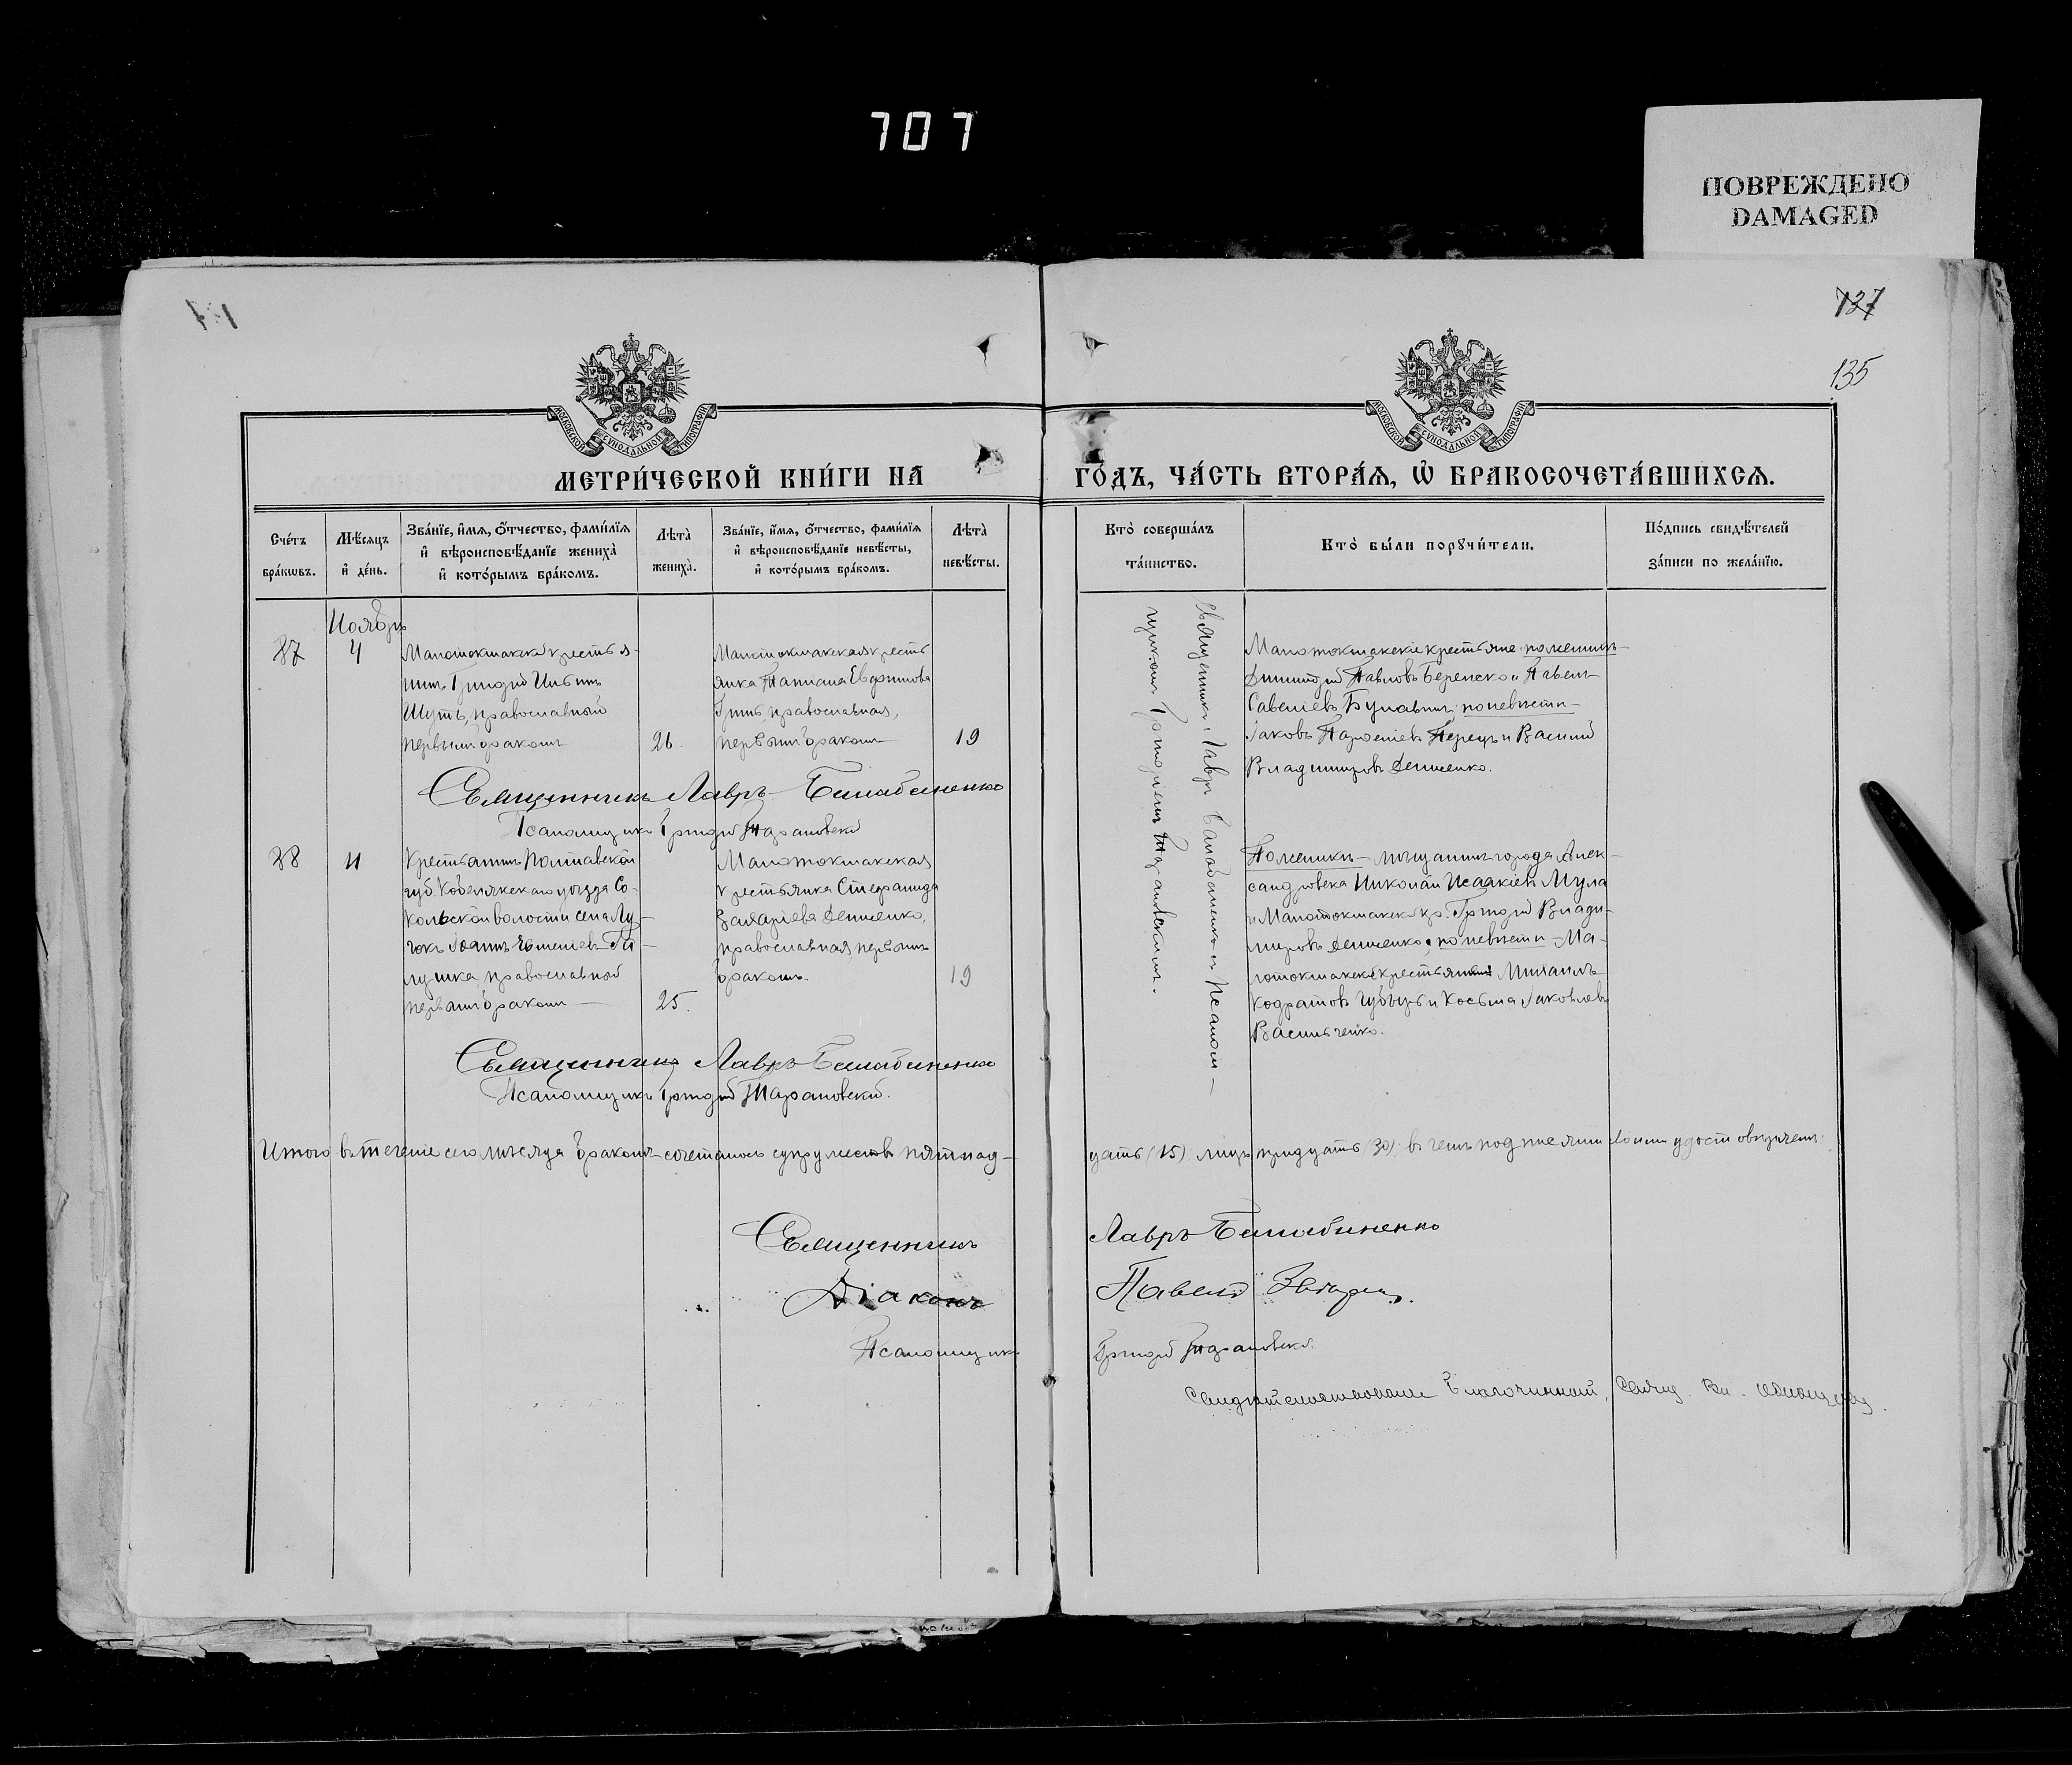 707
ПОВРЕЖДЕНО
DAMAGED
127
135
МОСКОВСКОЙ СѴНОДАЛЬНОЙ ТИПОГРАФІИ
МОСКОВСКОЙ СѴНОДАЛЬНОЙ ТИПОГРАФІИ
МЕТРИ́ЧЕСКОЙ КНИ́ГИ НА
ГО́ДЪ, ЧА́СТЬ ВТОРА́Я, Ѽ БРАКОСОЧЕТА́ВШИХСЯ.
Сче́тъ бра́кѡвъ.
Мѣ́сяцъ и҆ де́нь.
Зва́нїе, и҆́мя, ѻ҆́тчество, фами́лїя и҆ вѣроисповѣ́данїе жениха̀ и҆ кото́рымъ бра́комъ.
Лѣта̀ жениха̀.
Зва́нїе, и҆́мя, ѻ҆́тчество, фами́лїя и҆ вѣроисповѣ́данїе невѣ́сты, и҆ кото́рымъ бра́комъ.
Лѣта̀ невѣ́сты.
Кто̀ соверша́лъ та́инство.
Кто̀ бы́ли порꙋчи́тели.
По́дпись свидѣ́телей за́писи по жела́нїю.
Ноябрь
37
4
Малотокмакскій крестья-
нинъ Григорій Ильинъ
Шуть, православный
первымъ бракомъ
26.
Малотокмакская кресть
янка Татiана Евфимова
православная,
первымъ бракомъ
19
Малотокмакскіе крестьяне: по женихѣ
Димитрій Павловъ Беренско и Павелъ
Савеліевъ Булавинъ, по невѣсти
Іаковъ Перецъ и Василій
Владиміровъ Денисенко.
Священникъ Лавръ Балабаненко
Псаломщикъ Григорій Тарановскій
38
11
Крестьянинъ Полтавской
губ. Кобелякскаго уѣзда Со-
кольской волости села Лу-
чокъ Іоаннъ Га-
лушка, православный
первымъ бракомъ
25.
Малотокмакская
крестьянка Стефанида
Захаріева Денисенко,
православная первымъ
бракомъ.
19
По женихѣ – мѣщанинъ города Алек-
сандровска Николай Исаакіевъ Мула
и Малотокмакскій кр. Григорій Влади-
міровъ Денисенко; по невѣсти – Ма-
лотокмакскіе крестьяне Михаилъ
Кодратовъ и Косьма Іаковлевъ
Васильченко.
Священникъ Лавръ Балабаненко и Псалом-
щикомъ Григоріемъ Тарановскимъ.
Священникъ Лавръ Балабаненко
Псаломщикъ Григорій Тарановскій.
Итого въ теченіе сего мѣсяца бракомъ сочеталось супружествъ пятнад-
цать (15) лицъ тридцать (30). въ чемъ подписями своими удостовѣряемъ:
Священникъ Лавръ Балабаненко
Діаконъ Павелъ
Псаломщикъ Григорій Тарановскій.
Благочинный, Свящ. Вл.